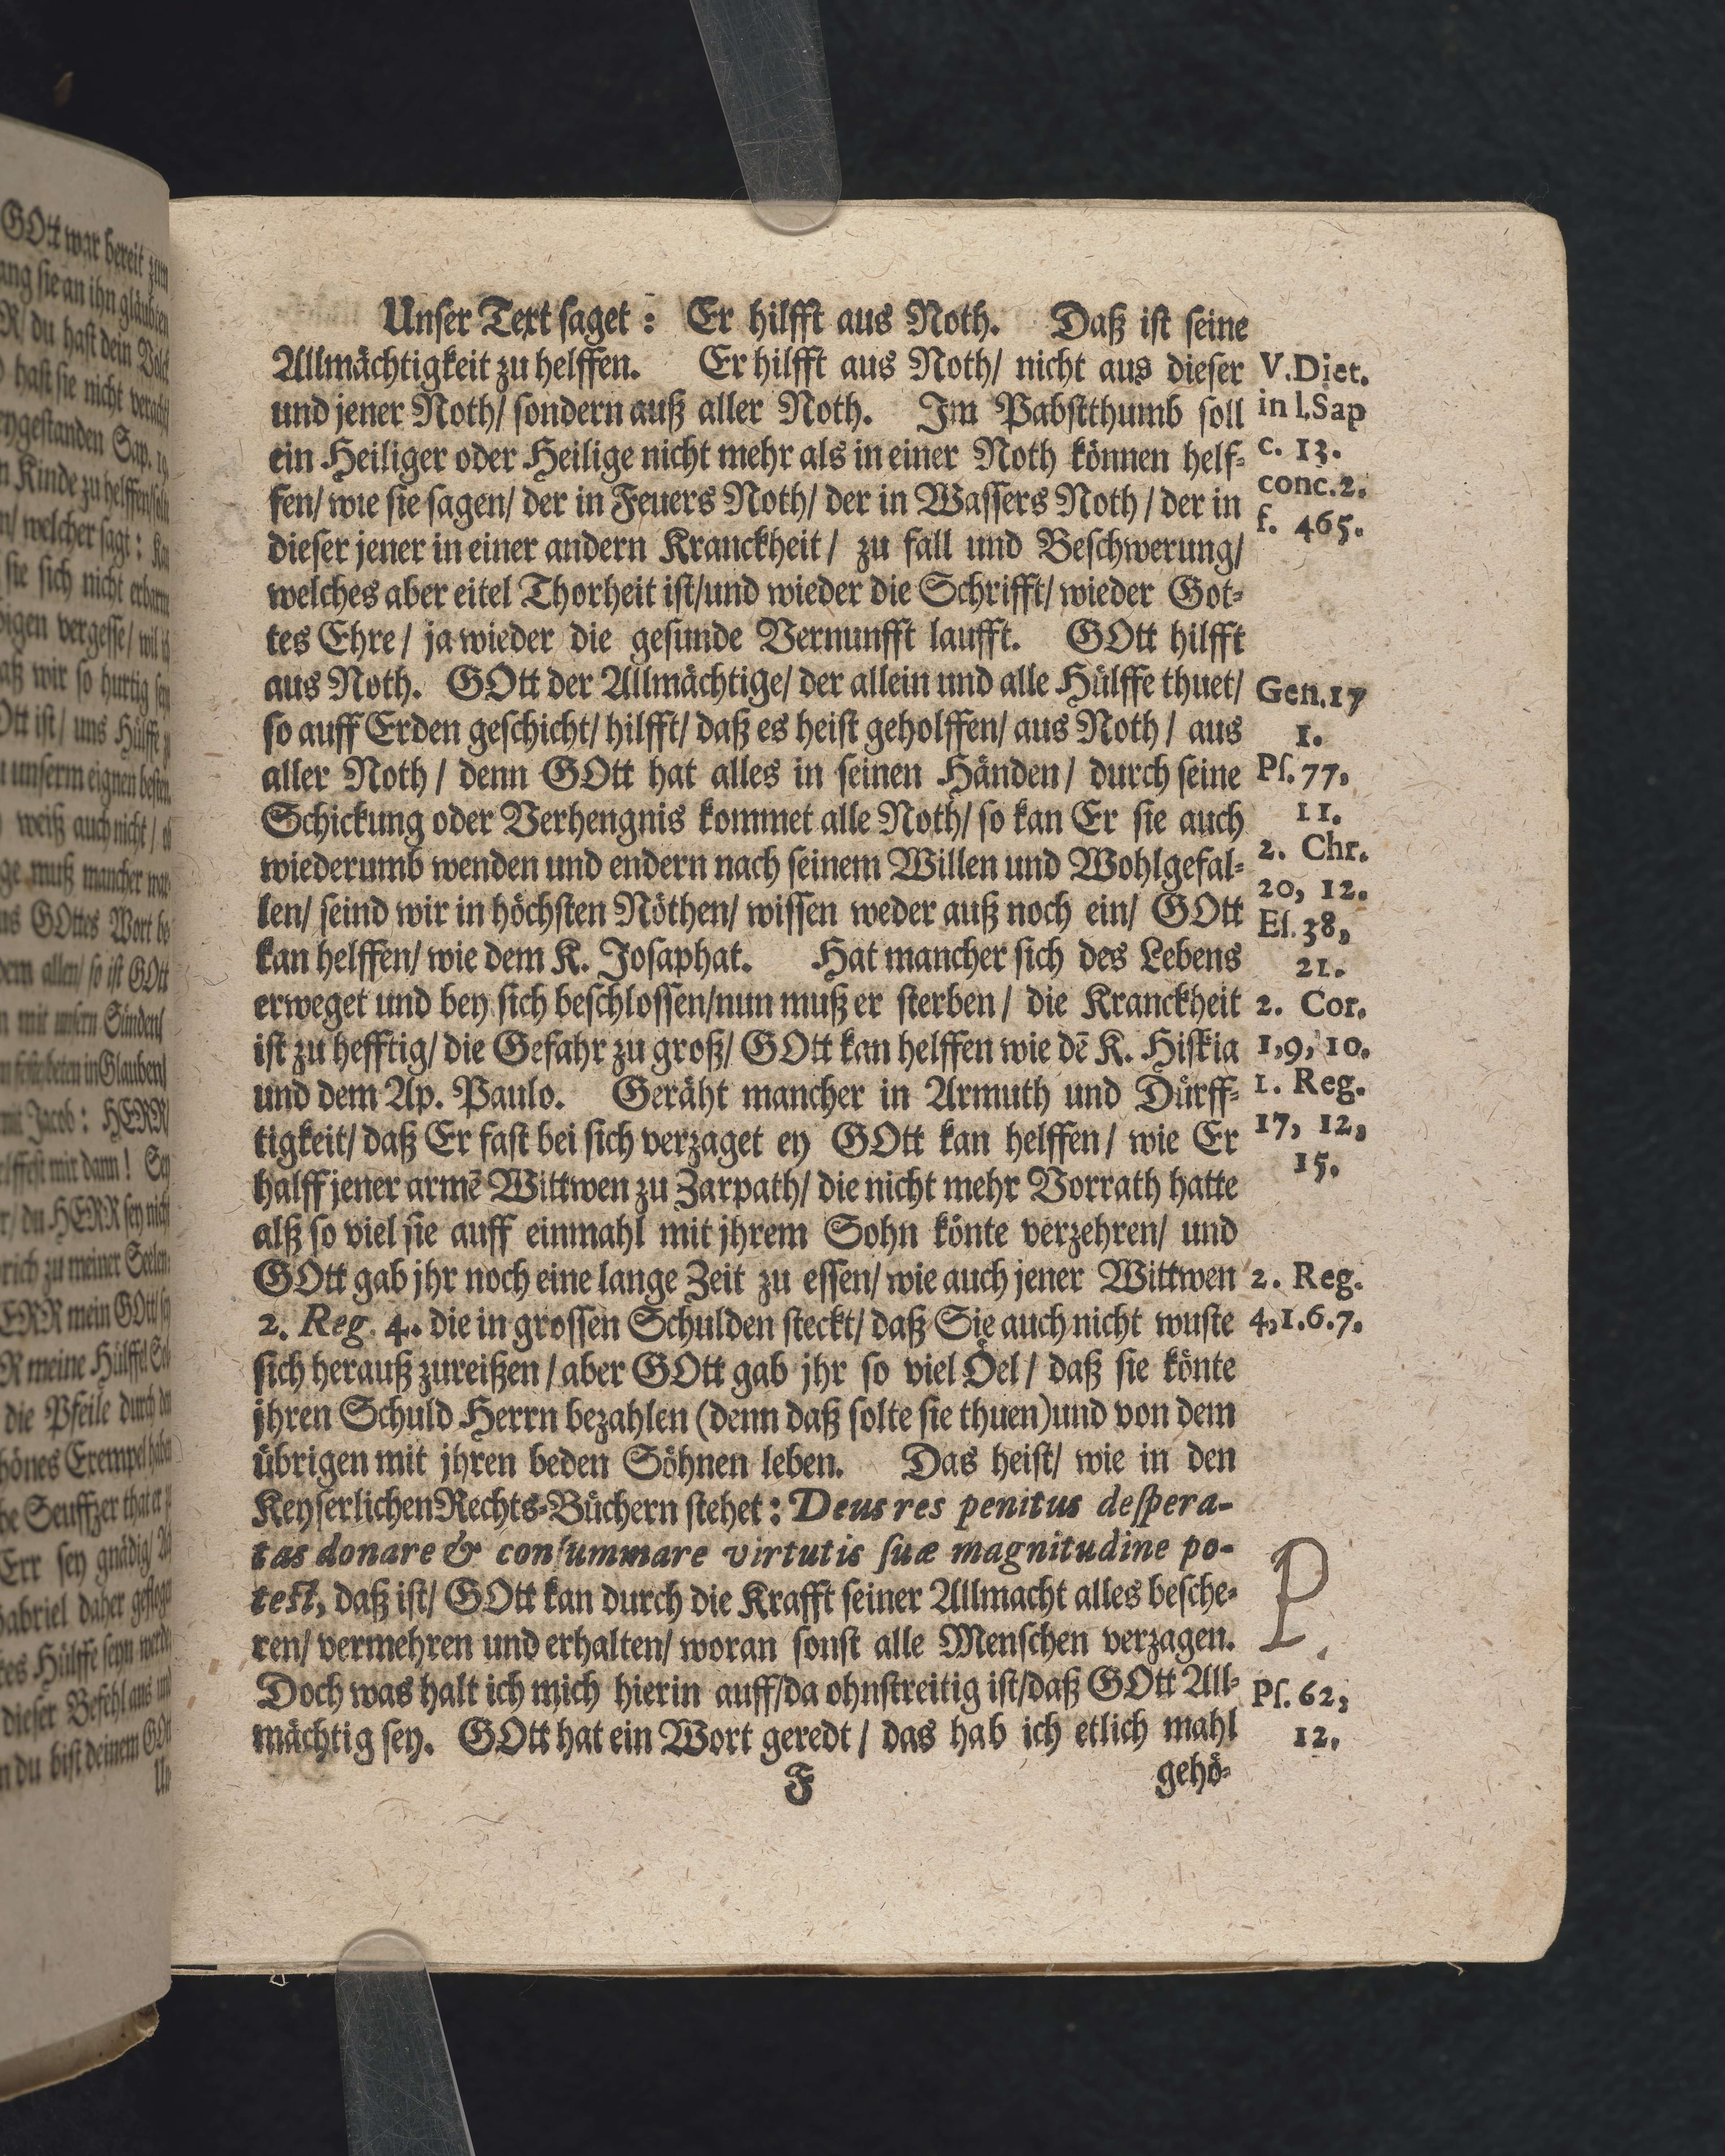 Unser Text saget: Er hilfft aus Noth. Daß ist seine
Allmächtigkeit zu helffen. Er hilfft aus Noth/ nicht aus dieser
und jener Noth/ sondern auß aller Noth. Im Pabstthumb soll
ein Heiliger oder Heilige nicht mehr als in einer Noth können helf-
fen/ wie sie sagen/ der in Feuers Noth/ der in Wassers Noth/ der in
dieser jener in einer andern Kranckheit/ zu fall und Beschwerung/
welches aber eitel Thorheit ist/und wieder die Schrifft/ wieder Got-
tes Ehre/ ja wieder die gesunde Vernunfft laufft. GOtt hilfft
aus Noth. GOtt der Allmächtige/ der allein und alle Hülffe thuet/
so auff Erden geschicht/ hilfft/ daß es heist geholffen/ aus Noth/ aus
aller Noth/ denn GOtt hat alles in seinen Händen/ durch seine
Schickung oder Verhengnis kommet alle Noth/ so kan Er sie auch
wiederumb wenden und endern nach seinem Willen und Wohlgefal-
len/ seind wir in höchsten Nöthen/ wissen weder auß noch ein/ GOtt
kan helffen/ wie dem K. Josaphat. Hat mancher sich des Lebens
erweget und bey sich beschlossen/nun muß er sterben/ die Kranckheit
ist zu hefftig/ die Gefahr zu groß/ GOtt kan helffen wie dē K. Hiskia
und dem Ap. Paulo. Geräht mancher in Armuth und Dürff-
tigkeit/ daß Er fast bei sich verzaget ey GOtt kan helffen/ wie Er
halff jener armē Wittwen zu Zarpath/ die nicht mehr Vorrath hatte
alß so viel sie auff einmahl mit jhrem Sohn könte verzehren/ und
GOtt gab jhr noch eine lange Zeit zu essen/ wie auch jener Wittwen
2. Reg. 4. die in grossen Schulden steckt/ daß Sie auch nicht wuste
sich herauß zureißen/ aber GOtt gab jhr so viel Öel/ daß sie könte
jhren Schuld Herrn bezahlen (denn daß solte sie thuen)und von dem
übrigen mit jhren beden Söhnen leben. Das heist/ wie in den
Keyserlichen Rechts-Büchern stehet: Deus res penitus despera-
tas donare & consummare virtutis suæ magnitudine po-
test, daß ist/ GOtt kan durch die Krafft seiner Allmacht alles besche-
ren/ vermehren und erhalten/ woran sonst alle Menschen verzagen.
Doch was halt ich mich hierin auff/da ohnstreitig ist/daß GOtt All-
mächtig sey. GOtt hat ein Wort geredt/ das hab ich etlich mahl
F gehö-
V. Diet.
in l. Sap
c. 13.
conc. 2.
f. 465.
Gen. 17
1.
Ps. 77,
11.
2. Chr.
20, 12.
Es. 38,
21.
2. Cor.
1,9, 10.
1. Reg.
17, 12,
15.
2. Reg.
4,1.6.7.
P.
Ps. 62,
12.